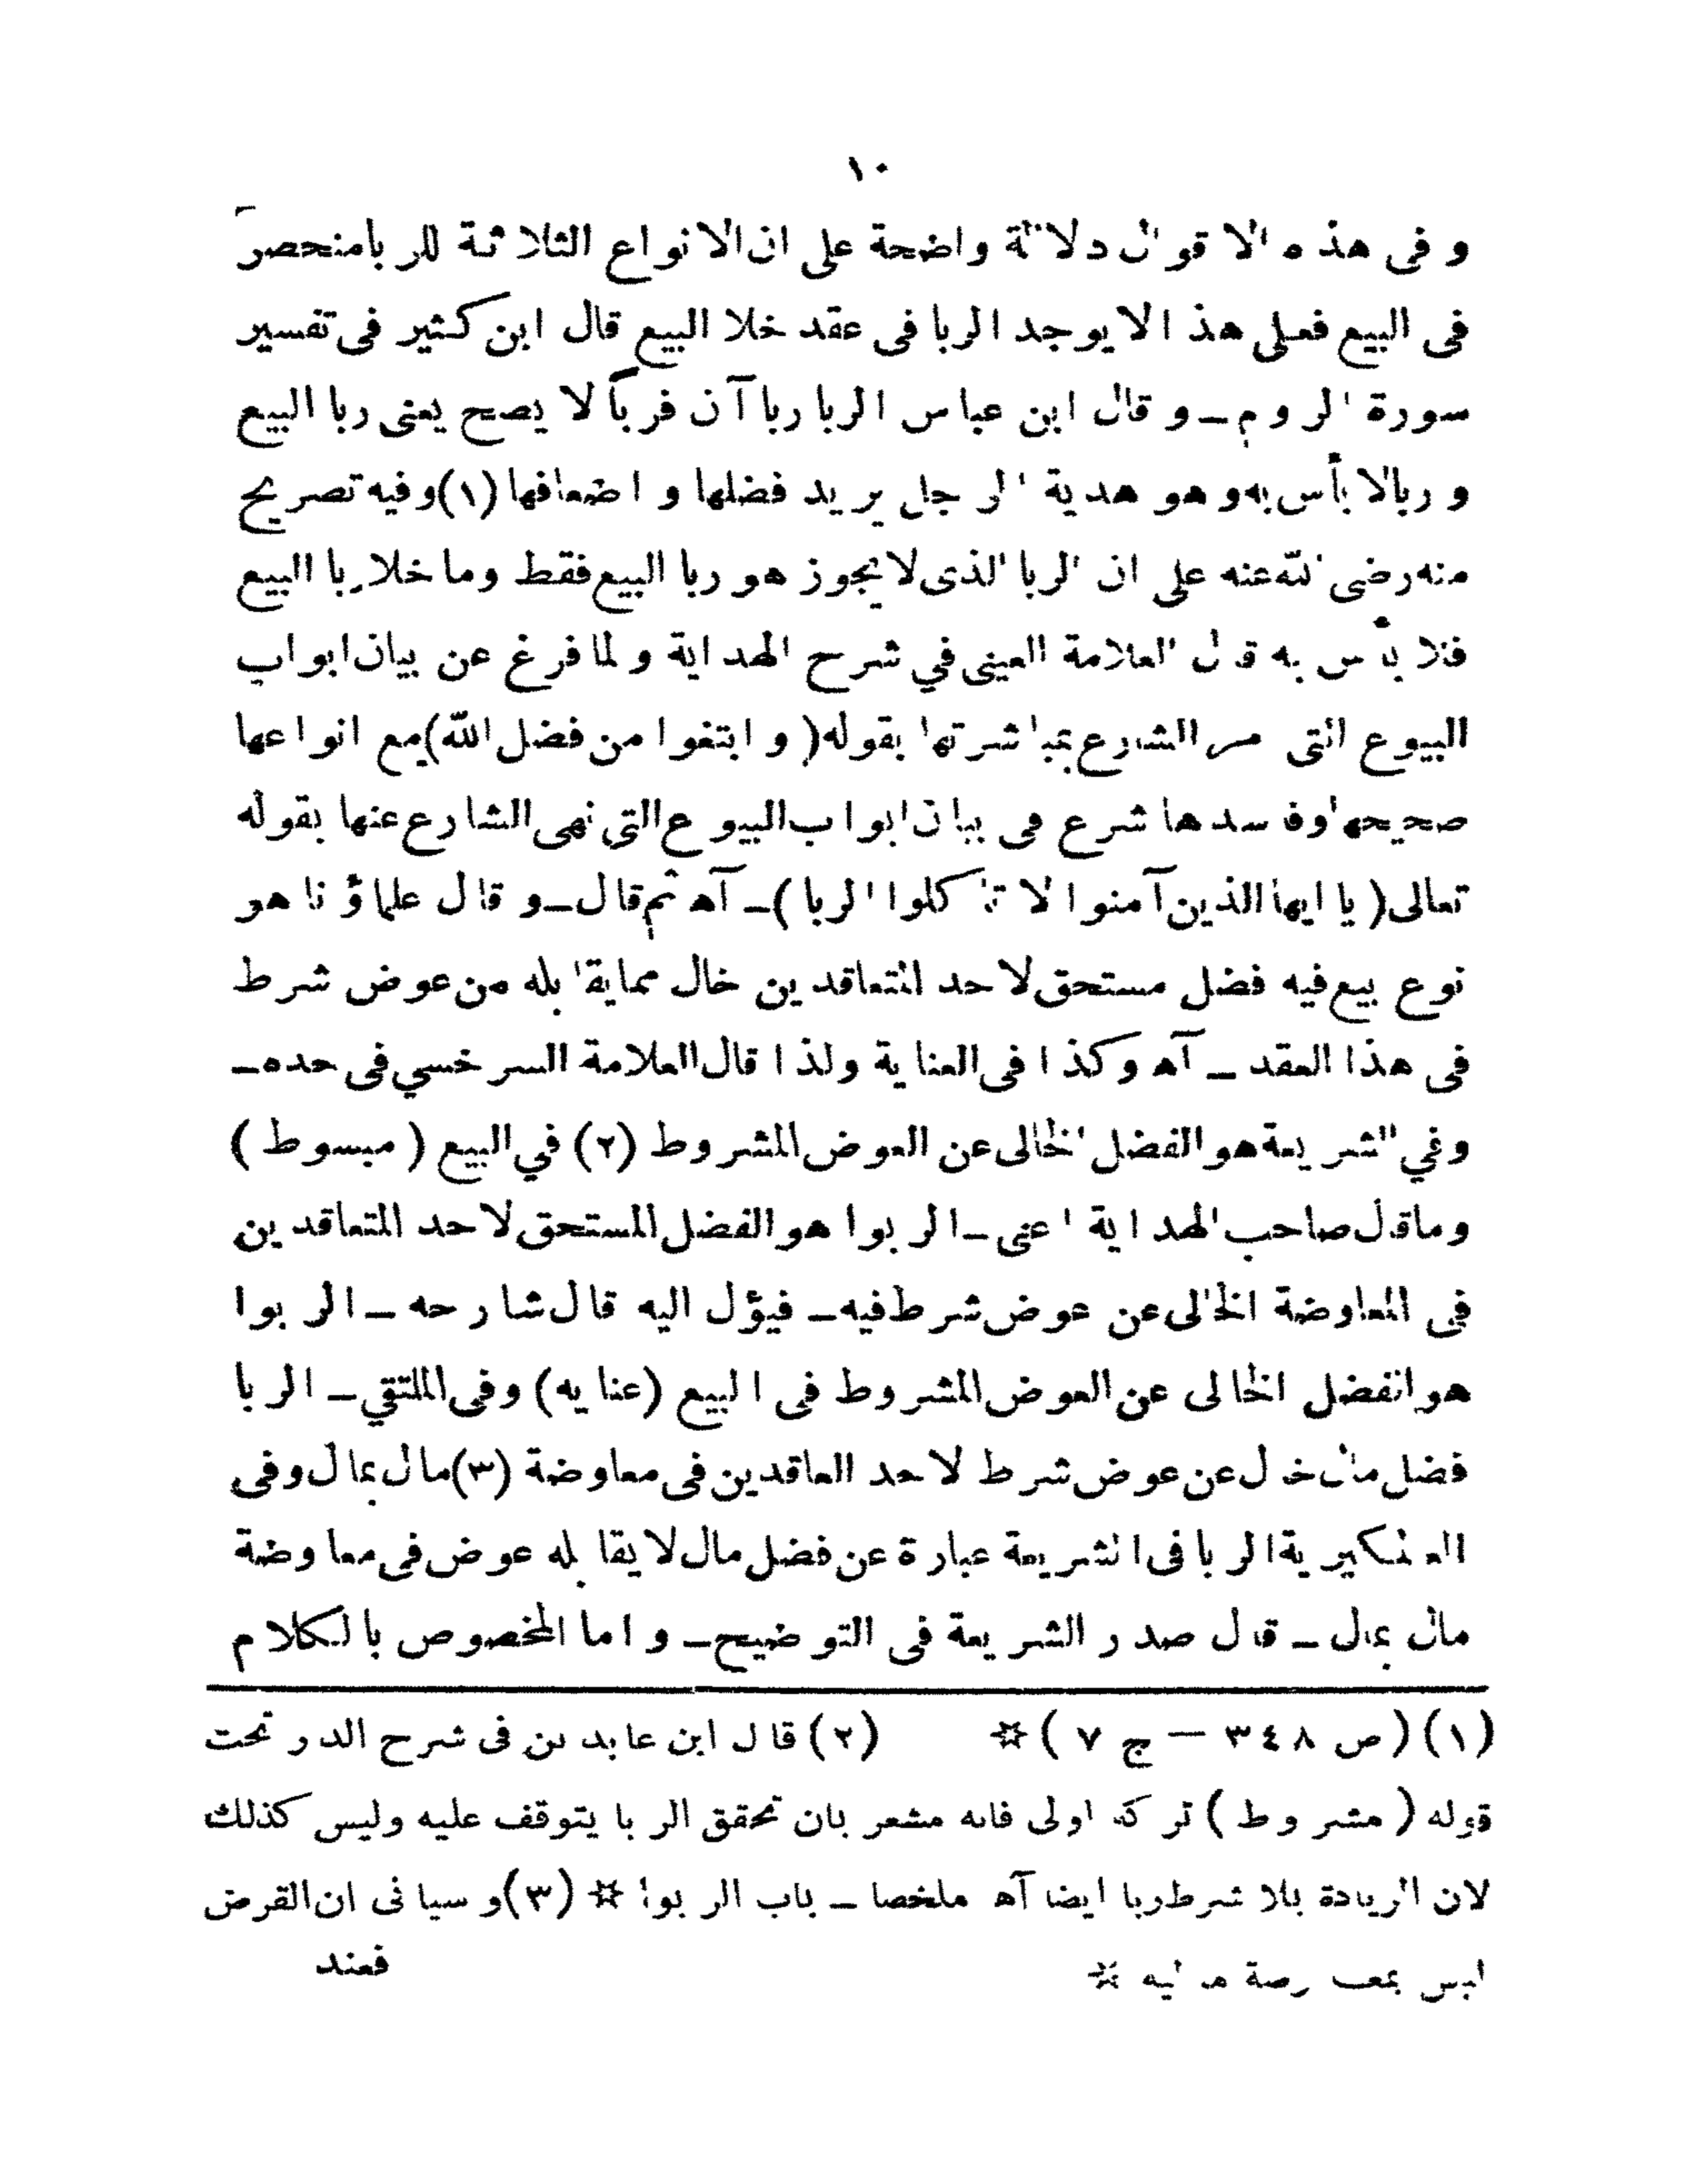 ١٠
و فى هذه الاقوال دلالة واضحة على ان الانواع الثلاثة للربا منحصر
فى البيع فعلى هذا لا يوجد الربا فى عقد خلا البيع قال ابن كثير فى تفسير
سورة الروم ـ و قال ابن عباس الربا رباآن فرباً لا يصح يعنى ربا البيع
و ربا لا بأس به و هو هدية الرجل يريد فضلها و اضعافها (١) وفيه تصريح
منه رضى الله عنه على ان الربا الذى لا يجوز هو ربا البيع فقط وما خلا ربا البيع
فلا بأس به قال العلامة العينى في شرح الهداية و لما فرغ عن بيان ابواب
البيوع التى امر الشارع بمباشرتها بقوله ( و ابتغوا من فضل الله ) مع انواعها
صحيحها وفاسدها شرع فى بيان ابواب البيوع التى نهى الشارع عنها بقوله
تعالى ( يا ايها الذين آمنوا لا تاكلوا الربا ) ـ آه ثم قال ـ و قال علماؤنا هو
نوع بيع فيه فضل مستحق لاحد المتعاقدين خال مما يقابله من عوض شرط
فى هذا العقد ـ آه وكذا فى العناية ولذا قال العلامة السرخسي فى حده ـ
وفي الشريعة هو الفضل الخالى عن العوض المشروط (٢) في البيع ( مبسوط )
وما قال صاحب الهداية اعنى ـ الربوا هو الفضل المستحق لاحد المتعاقدين
فى المعاوضة الخالى عن عوض شرط فيه ـ فيؤل اليه قال شارحه ـ الربوا
هو الفضل الخالى عن العوض المشروط فى البيع (عنايه) وفى الملتقي ـ الربا
فضل مال خال عن عوض شرط لاحد العاقدين فى معاوضة (٣) مال بمال وفى
العلمكيرية الربا فى الشريعة عبارة عن فضل مال لا يقابله عوض فى معاوضة
مال بمال ـ قال صدر الشريعة فى التوضيح ـ و اما المخصوص بالكلام
(١) (ص ٣٤٨ — ج ٧ ) ☆ (٢) قال ابن عابدين فى شرح الدر تحت
قوله ( مشروط ) تركه اولى فانه مشعر بان تحقق الربا يتوقف عليه وليس كذلك
لان الزيادة بلا شرط ربا ايضا آه ملخصا ـ باب الربوا ☆ (٣) و سياتى ان القرض
ليس بمعاوضة مالية ☆
فعند